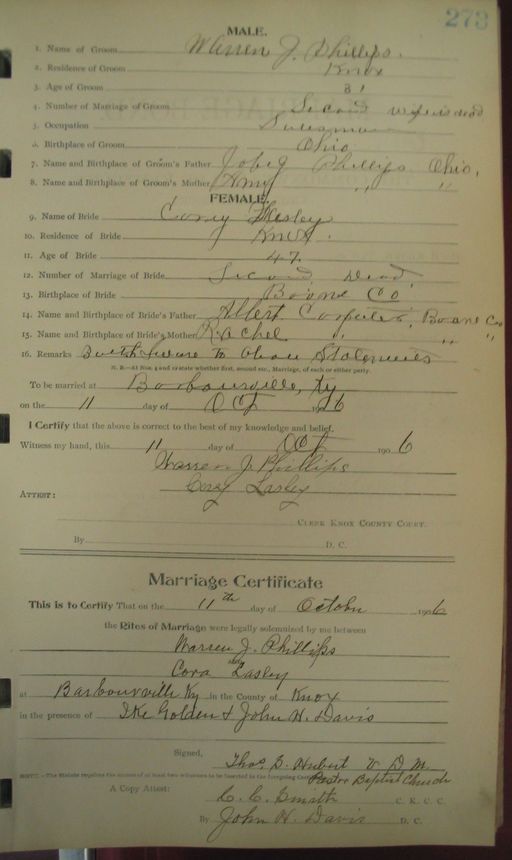 273
MALE.
1. Name of Groom Warren J. Phillips.
2. Residence of Groom Knox
3. Age of Groom
4. Number of Marriage of Groom Second wife is dead
5. Occupation Salesman
6. Birthplace of Groom Ohio
7. Name and Birthplace of Groom's Father Phillips Ohio,
8. Name and Birthplace of Groom's Mother Amy " "
FEMALE.
9. Name of Bride Lasley
10. Residence of Bride Knox.
11. Age of Bride 47.
12. Number of Marriage of Bride Second Dead
13. Birthplace of Bride Boone Co
14. Name and Birthplace of Bride's Father Albert Boone Co
15. Name and Birthplace of Bride's Mother Rachel " " "
16. Remarks to Statements
N. B.—At Nos. 4 and 12 state whether first, second etc., Marriage, of each or either party.
To be married at Barbourville, Ky
on the 11 day of Oct 1906
I Certify that the above is correct to the best of my knowledge and belief.
Witness my hand, this 11 day of Oct 1906
Warren J. Phillips
Lasley
ATTEST:
CLERK KNOX COUNTY COURT.
By D. C.
Marriage Certificate
This is to Certify That on the 11th day of October 1906
the Rites of Marriage were legally solemnized by me between
Warren J. Phillips
Cora Lasley
at Barbourville Ky in the County of Knox
in the presence of Ike Golden & John H. Davis
Signed, Thos. Hubert V D M
NOTE.—The Statute requires the names of at least two witnesses to be inserted in the foregoing Certificate. Pastor Baptist Church
A Copy Attest: C. C. Smith C. K. C. C.
By John H. Davis D. C.